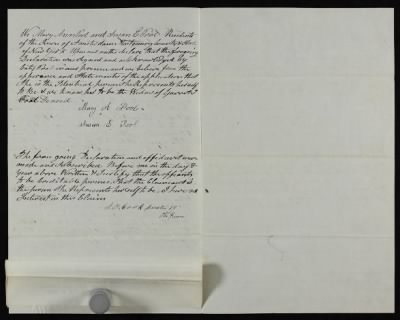 We Mary A Pool and Susan E Pool Residents
of the Town of Amsterdam Montgomery County & State
of New York upon oath declare that the foregoing
Declaration was Signed and acknowledged by
in our presence and we believe from the
appearance and Statements of the applicant that
She is the Identical person She Represents herself
to Be & we know her to be the Widow of Garret
Pool Deceased
Mary A Pool
Susan E Pool
The foregoing Declaration and affidavit were
made and subscribed Before me on the day &
year above Written & I certify that the affiants
to be Credible persons that the Claimant is
the person She Represents herself to be, I have no
Interest in this Claim
Justice of
the Peace